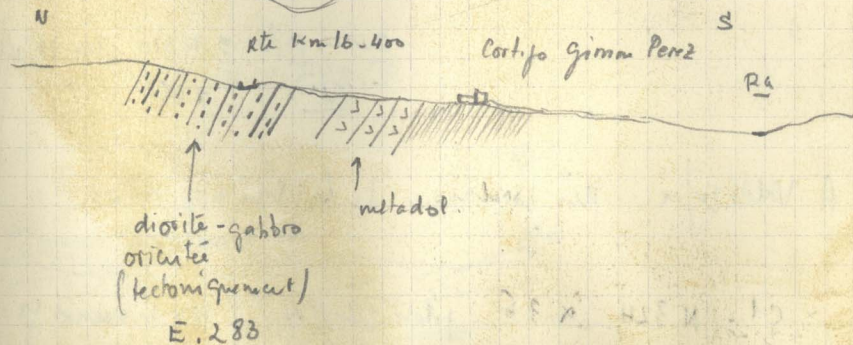 N
S
Rte Km 16-400
Cortijo Gimon Perez
Ra
metadol.
diorite-gabbro
orientée
(tectoniquement)
E. 283